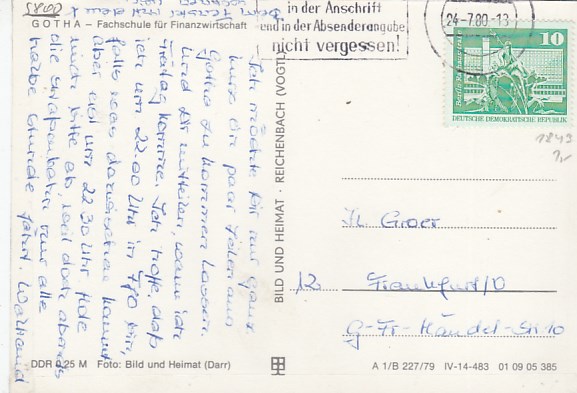 5800
GOTHA – Fachschule für Finanzwirtschaft
Ich möchte Dir nur ganz
kurz ein paar Zeilen aus
Gotha zu kommen lassen
und Dir mitteilen, wann ich
Freitag komme. Ich hoffe, daß
ich um 22.00 Uhr in Ffo bin,
falls was dazwischen kommt
aber erst um 22.30 Uhr. Hole
mich bitte ab, weil doch abends
die Straßenbahn nur alle
halbe Stunde fährt.
DDR 0,25 M Foto: Bild und Heimat (Darr)
BILD UND HEIMAT · REICHENBACH (VOGTL
in der Anschrift
und in der Absenderangabe
nicht vergessen!
24.-7.80-13
10
DEUTSCHE DEMOKRATISCHE REPUBLIK
1843
12
Frankfurt/O
G-Fr-Händel-Str 10
A 1/B 227/79 IV-14-483 01 09 05 385